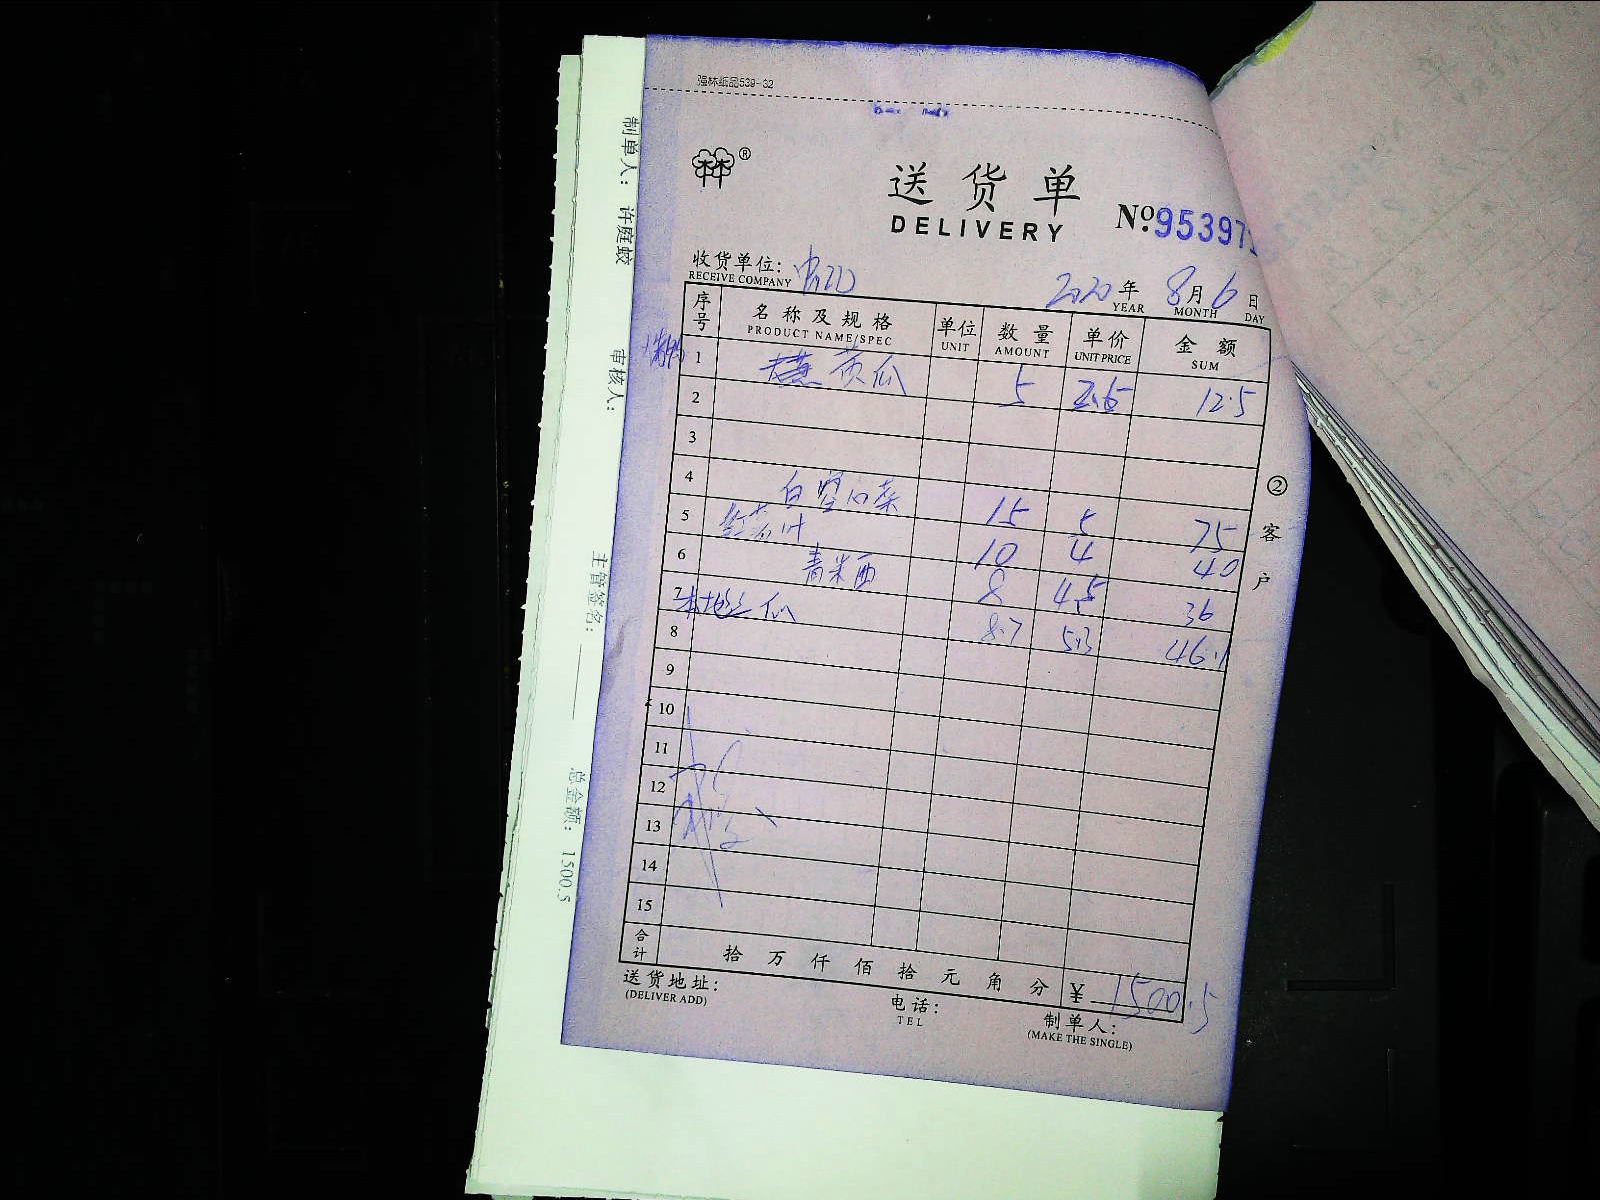 强林纸品539-32
送货单
DELIVERY
No.95397
收货单位:
RECEIVE COMPANY
2020年 8月6日
YEAR MONTH DAY
序号 名称及规格 单位 数量 单价 金额
PRODUCT NAME/SPEC UNIT AMOUNT UNIT PRICE SUM
1 黄瓜 5 2.5 12.5
2
3
4 白空心菜 15 5 75
5 红苕叶 10 4 40
6 青米西 8 4.5 36
7 本地瓜 8.7 5.3 46.1
8
9
10
11
12
13
14
15
合计 拾万仟佰拾元角分 ¥1500.5
送货地址:
(DELIVER ADD)
电话:
TEL
制单人:
(MAKE THE SINGLE)
②客户
制单人: 许庭蛟
审核人:
主管签名:
总金额: 1500.5